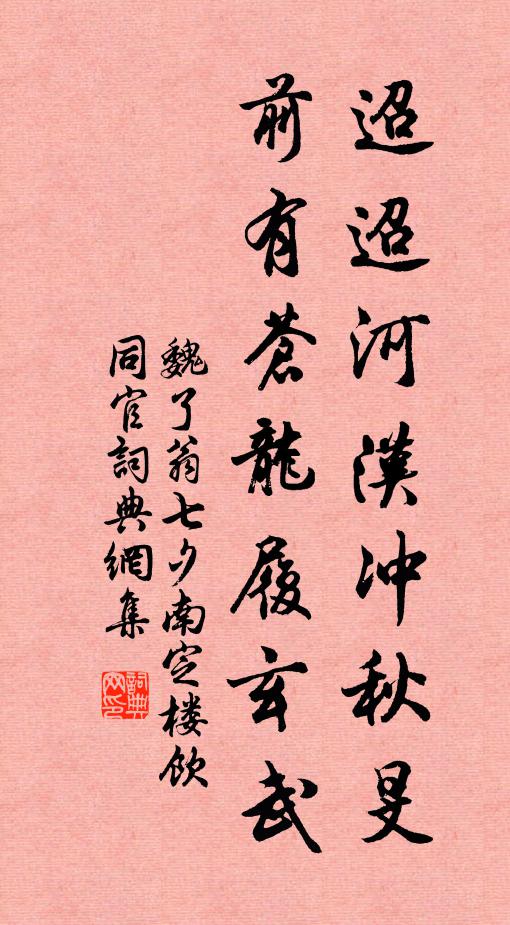 迢迢河漢冲秋旻
前有蒼龍履玄武
魏了翁七夕南定楼飲
同官詞典網集
詞典网印